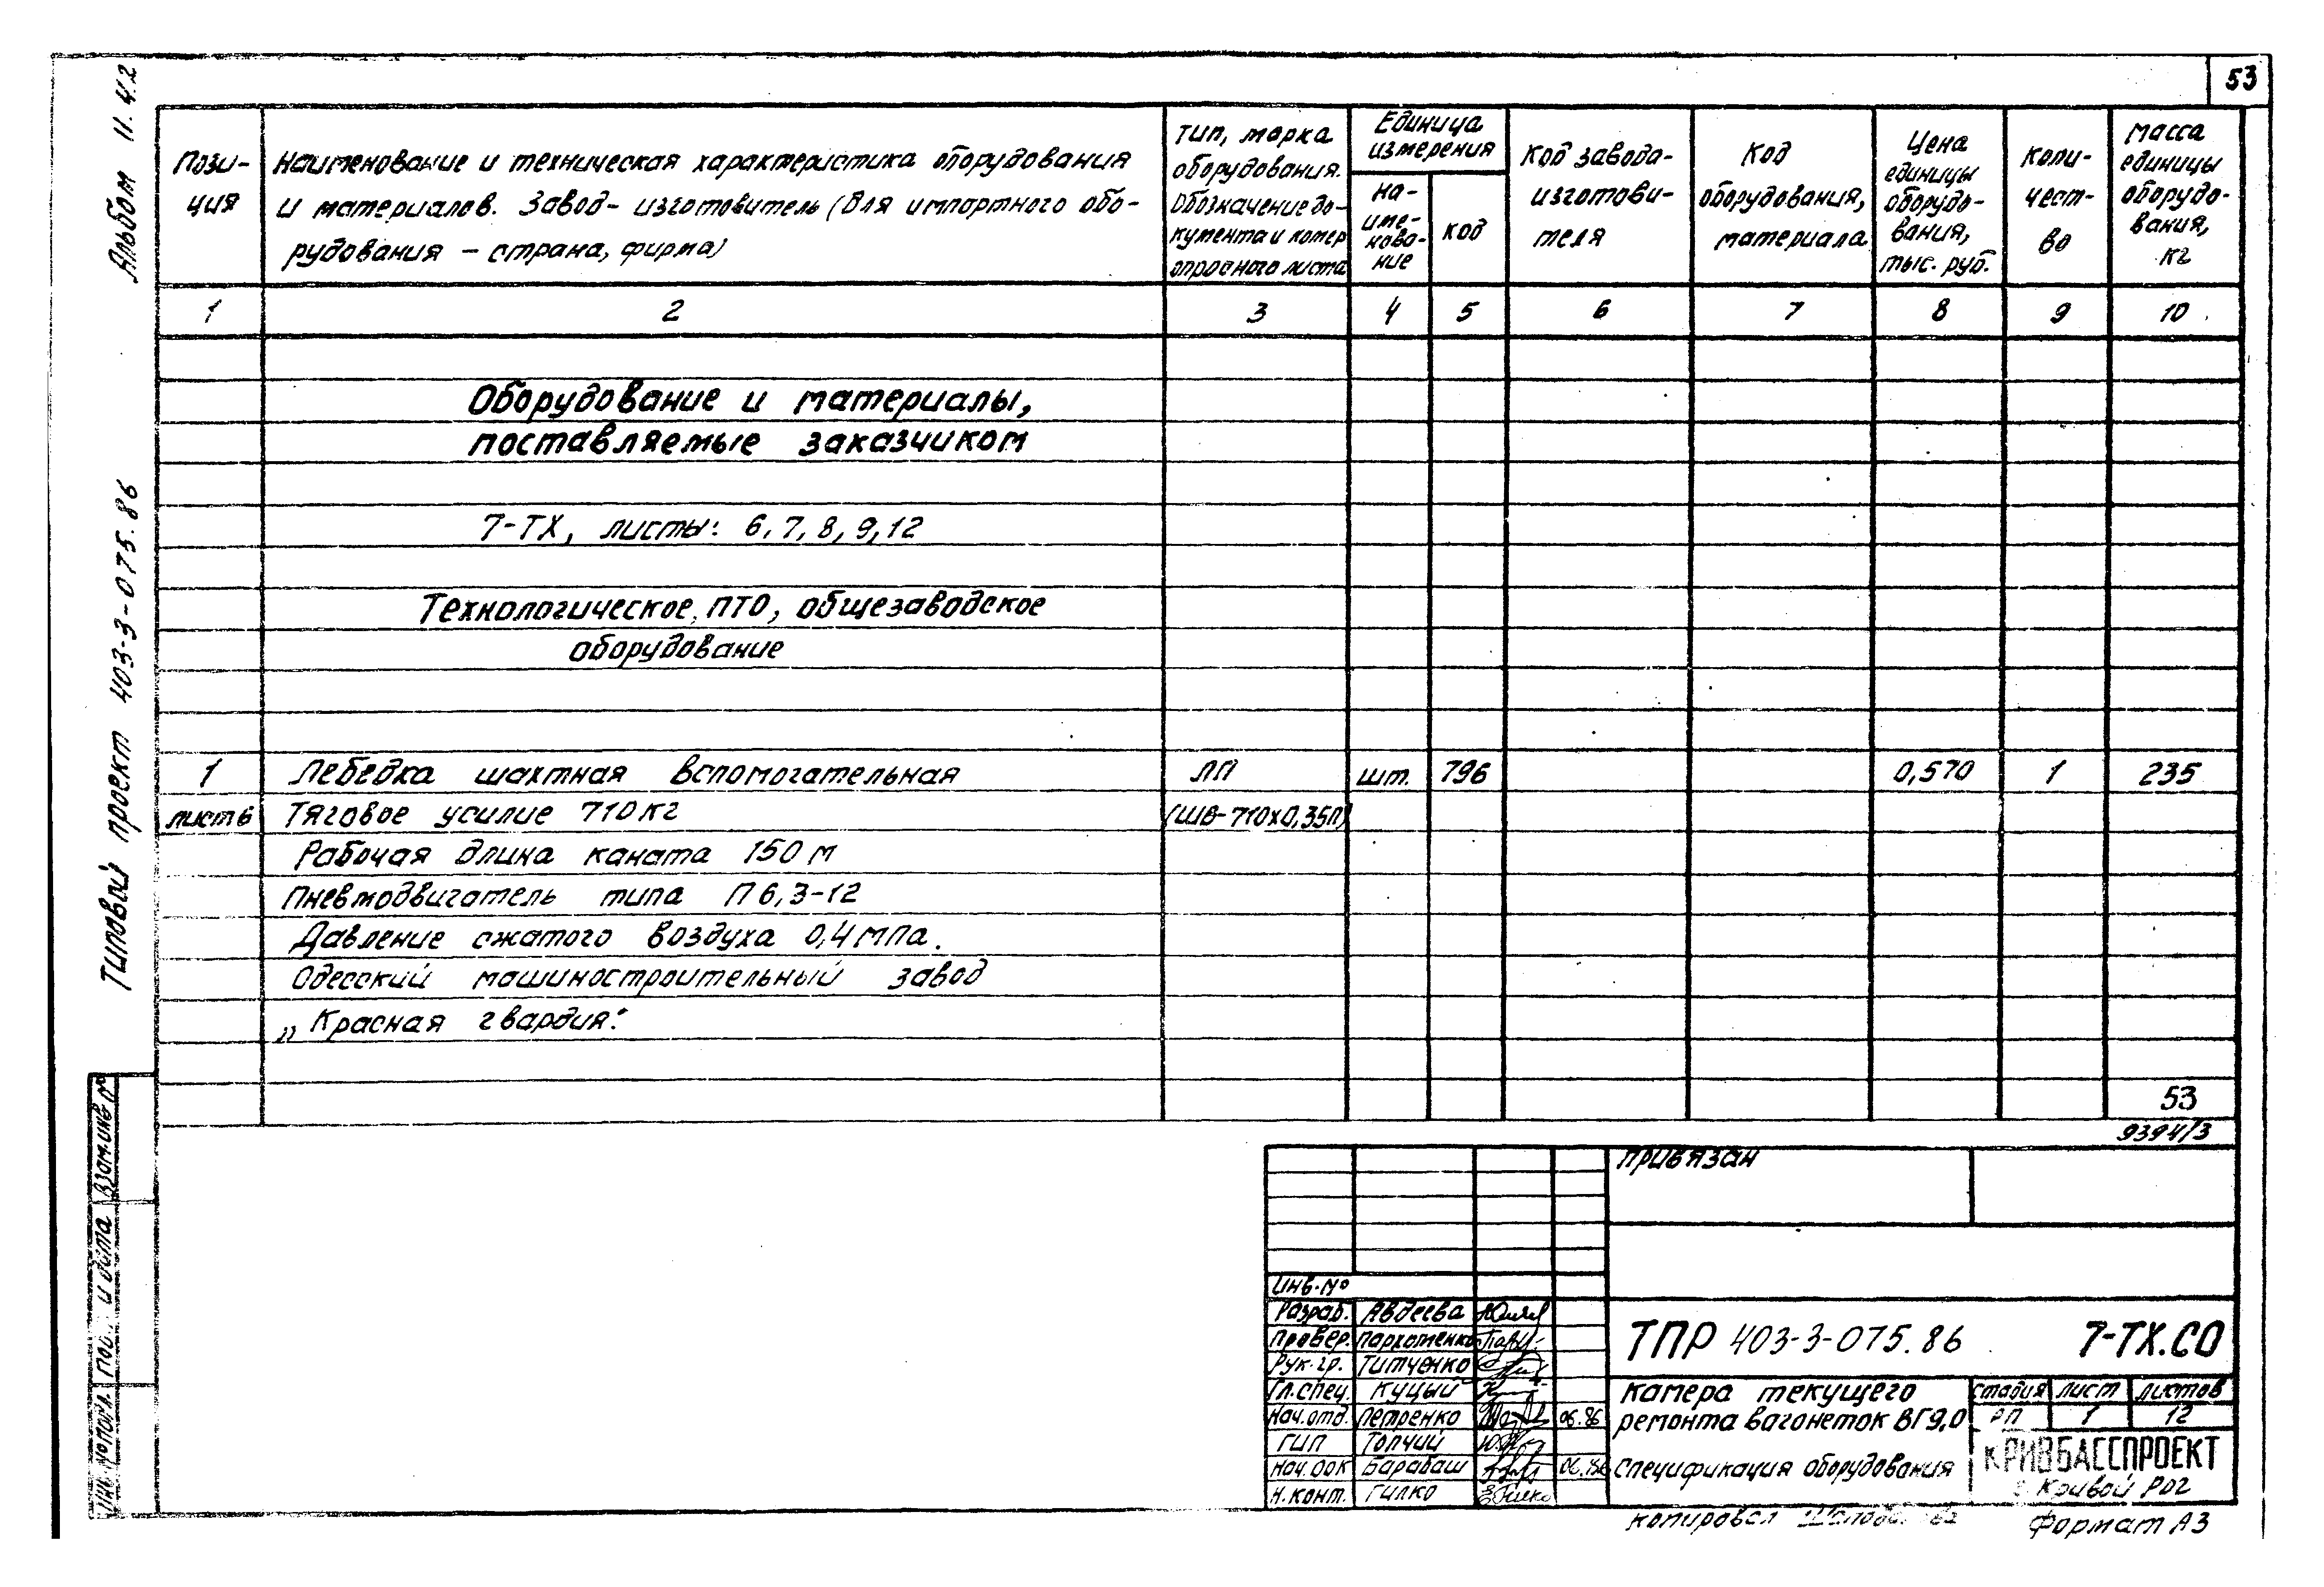 53
Альбом 11.4.2
Типовой проект 403-3-075.86
Пози-
ция
Наименование и техническая характеристика оборудования
и материалов. Завод-изготовитель (для импортного обо-
рудования - страна, фирма)
Тип, марка
оборудования.
Обозначение до-
кумента и номер
опросного листа
Единица
измерения
на-
име-
нова-
ние
код
Код завода-
изготови-
теля
Код
оборудования,
материала
Цена
единицы
оборудо-
вания,
тыс. руб.
Коли-
чест-
во
Масса
единицы
оборудо-
вания,
кг
1 2 3 4 5 6 7 8 9 10
Оборудование и материалы,
поставляемые заказчиком
7-ТХ, листы: 6, 7, 8, 9, 12
Технологическое, ПТО, общезаводское
оборудование
1 Лебедка шахтная вспомогательная ЛП шт. 796 0,570 1 235
лист 6 Тяговое усилие 710 кг (ШВ-710х0,35П)
Рабочая длина каната 150 м
Пневмодвигатель типа П 6,3-12
Давление сжатого воздуха 0,4 МПа.
Одесский машиностроительный завод
„Красная гвардия".
53
9394/3
Привязан
Инв. №
Разраб. Авдеева
Провер. Пархоменко
Рук. гр. Титченко
Гл. спец. Куцый
Нач. отд. Петренко 06.86
ГИП Топчий
Нач. ООК Барабаш 06.86
Н. конт. Гилко
ТПР 403-3-075.86 7-ТХ.СО
Камера текущего
ремонта вагонеток ВГ9,0
Спецификация оборудования
Стадия Лист Листов
РП 1 12
КРИВБАССПРОЕКТ
г. Кривой Рог
Взам. инв. №
Подп. и дата
Инв. № подл.
Копировал
Формат А3